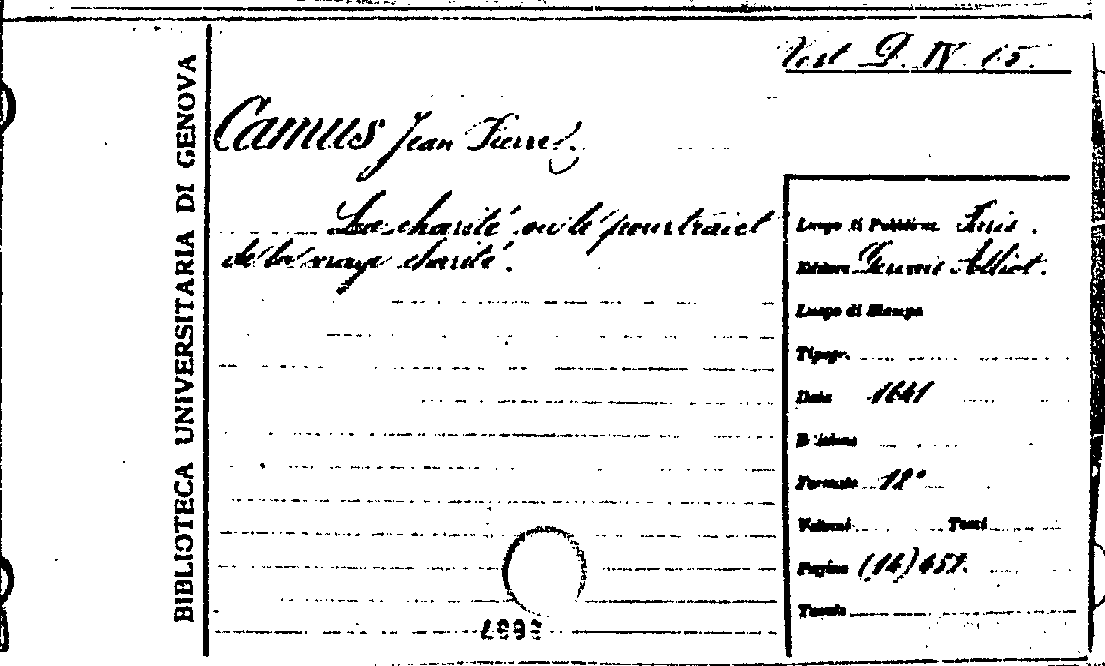 Vest D. IV. 15.
BIBLIOTECA UNIVERSITARIA DI GENOVA
Camus Jean Pierre.
La charité ou le pourtraict
de la vraye charité.
Luogo di Pubblicaz. Paris.
Editore Gervais Alliot.
Luogo di Stampa
Tipogr.
Data 1641
Edizione
Formato 12°
Volumi Tomi
Pagine (14)
Tavole